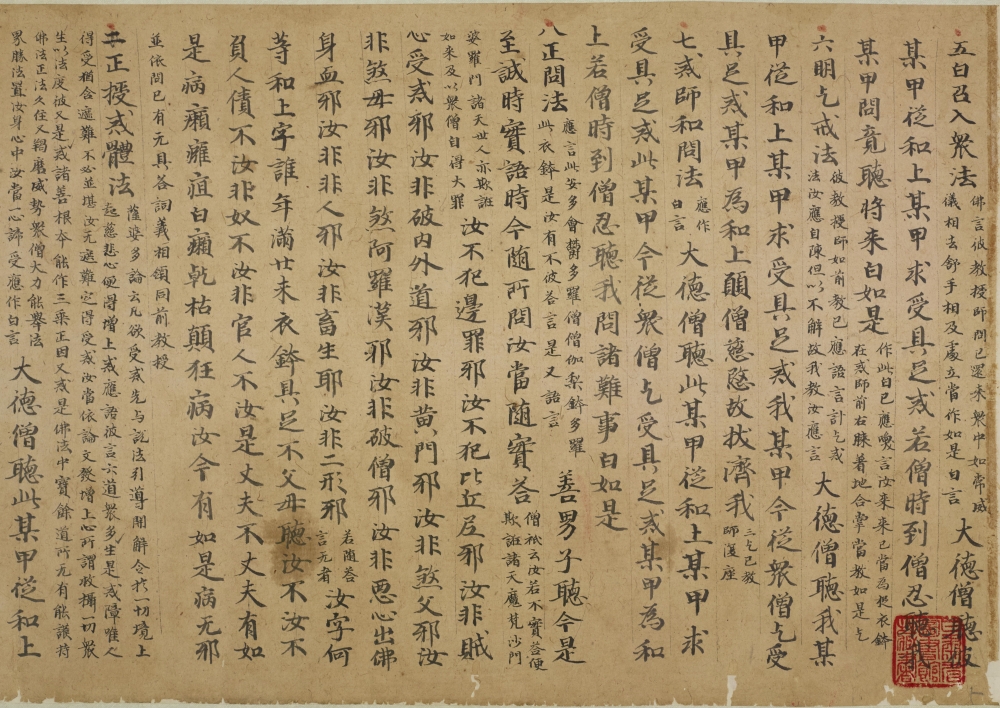 五白召入衆法 佛言彼教授師問已還来衆中如常威
儀相去舒手相及處立當作如是白言 大德僧聽彼
某甲從和上某甲求受具足戒若僧時到僧忍聽我
某甲問竟聽將来白如是 作此白已應喚言汝来来已當為捉衣鉢
在戒師前右膝著地合掌當教如是乞
六明乞戒法 彼教授師如前教已應語言計乞戒
法汝應自陳但以不解故我教汝應言 大德僧聽我某
甲從和上某甲求受具足戒我某甲今從衆僧乞受
具足戒某甲為和上願僧慈愍故拔濟我 三乞已教
師復座
七戒師和問法 應作
白言 大德僧聽此某甲從和上某甲求
受具足戒此某甲今從衆僧乞受具足戒某甲為和
上若僧時到僧忍聽我問諸難事白如是
八正問法 應言此安多會欝多羅僧僧伽梨鉢多羅
此衣鉢是汝有不彼答言是又語言 善男子聽今是
至誠時實語時今隨所問汝當隨實答 僧祇云汝若不實答便
欺誑諸天魔梵沙門
婆羅門諸天世人亦欺誑
如来及以衆僧自得大罪 汝不犯邊罪邪汝不犯比丘尼邪汝非賊
心受戒邪汝非破内外道邪汝非黄門邪汝非煞父邪汝
非煞母邪汝非煞阿羅漢邪汝非破僧邪汝非惡心出佛
身血邪汝非非人邪汝非畜生耶汝非二形邪 若隨答
言无者 汝字何
等和上字誰年滿廿未衣鉢具足不父母聽汝不汝不
負人債不汝非奴不汝非官人不汝是丈夫不丈夫有如
是病癩癰疽白癩乾枯顛狂病汝今有如是病无邪
並依問已有无具各詞義相領同前教授
二正授戒體法 薩婆多論云凡欲受戒先与説法引導開解令於一切境上
起慈悲心便得增上戒應語彼言六道衆多生是戒障唯人
得受猶含遮難不必並堪汝无遮難定得受戒汝當依論文發增上心所謂救攝一切衆
生以法度彼又是戒諸善根夲能作三乘正因又戒是佛法中寳餘道所无有能護持
佛法正法久住又羯磨威勢衆僧大力能舉法
界勝法置汝身心中汝當一心諦受應作白言 大德僧聽此某甲從和上